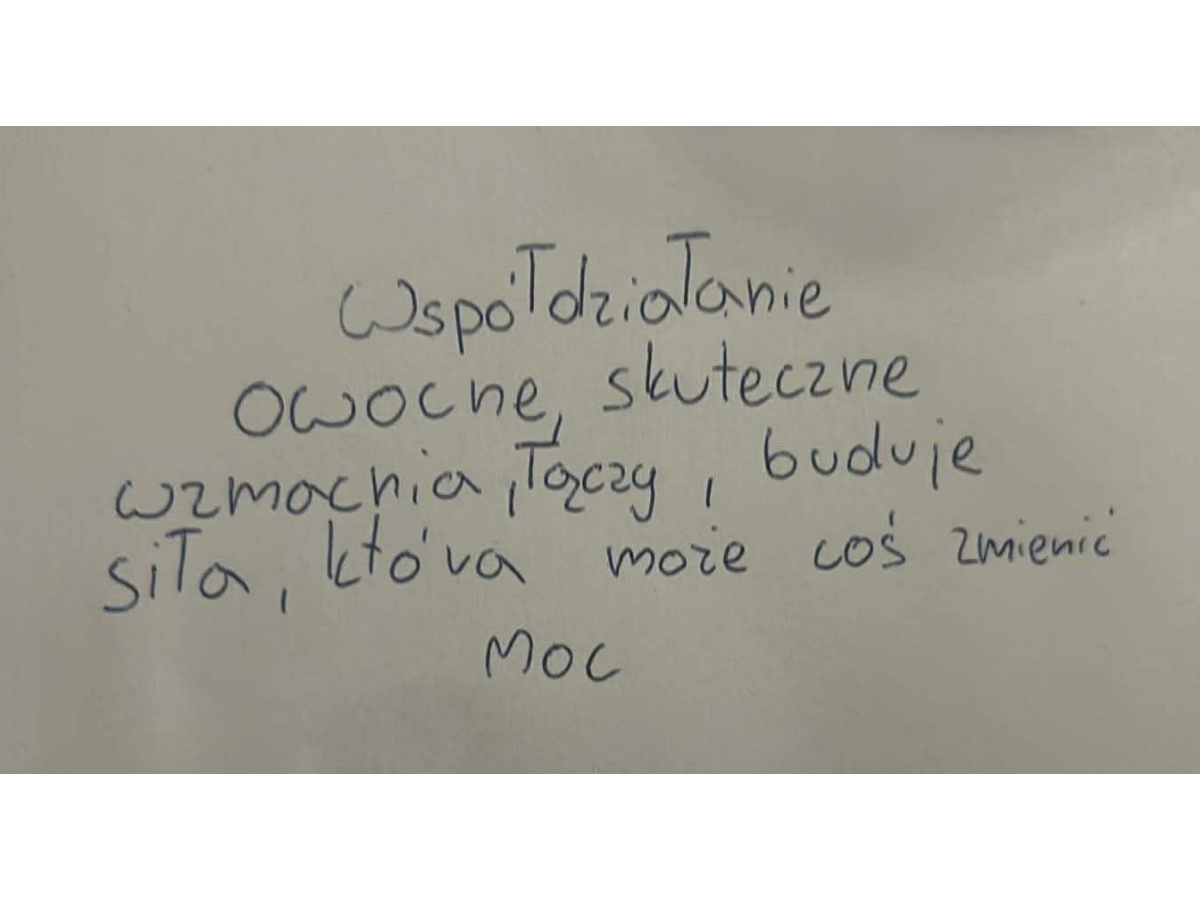 Współdziałanie
owocne, skuteczne
wzmacnia, łączy, buduje
siła, która może coś zmienić
Moc